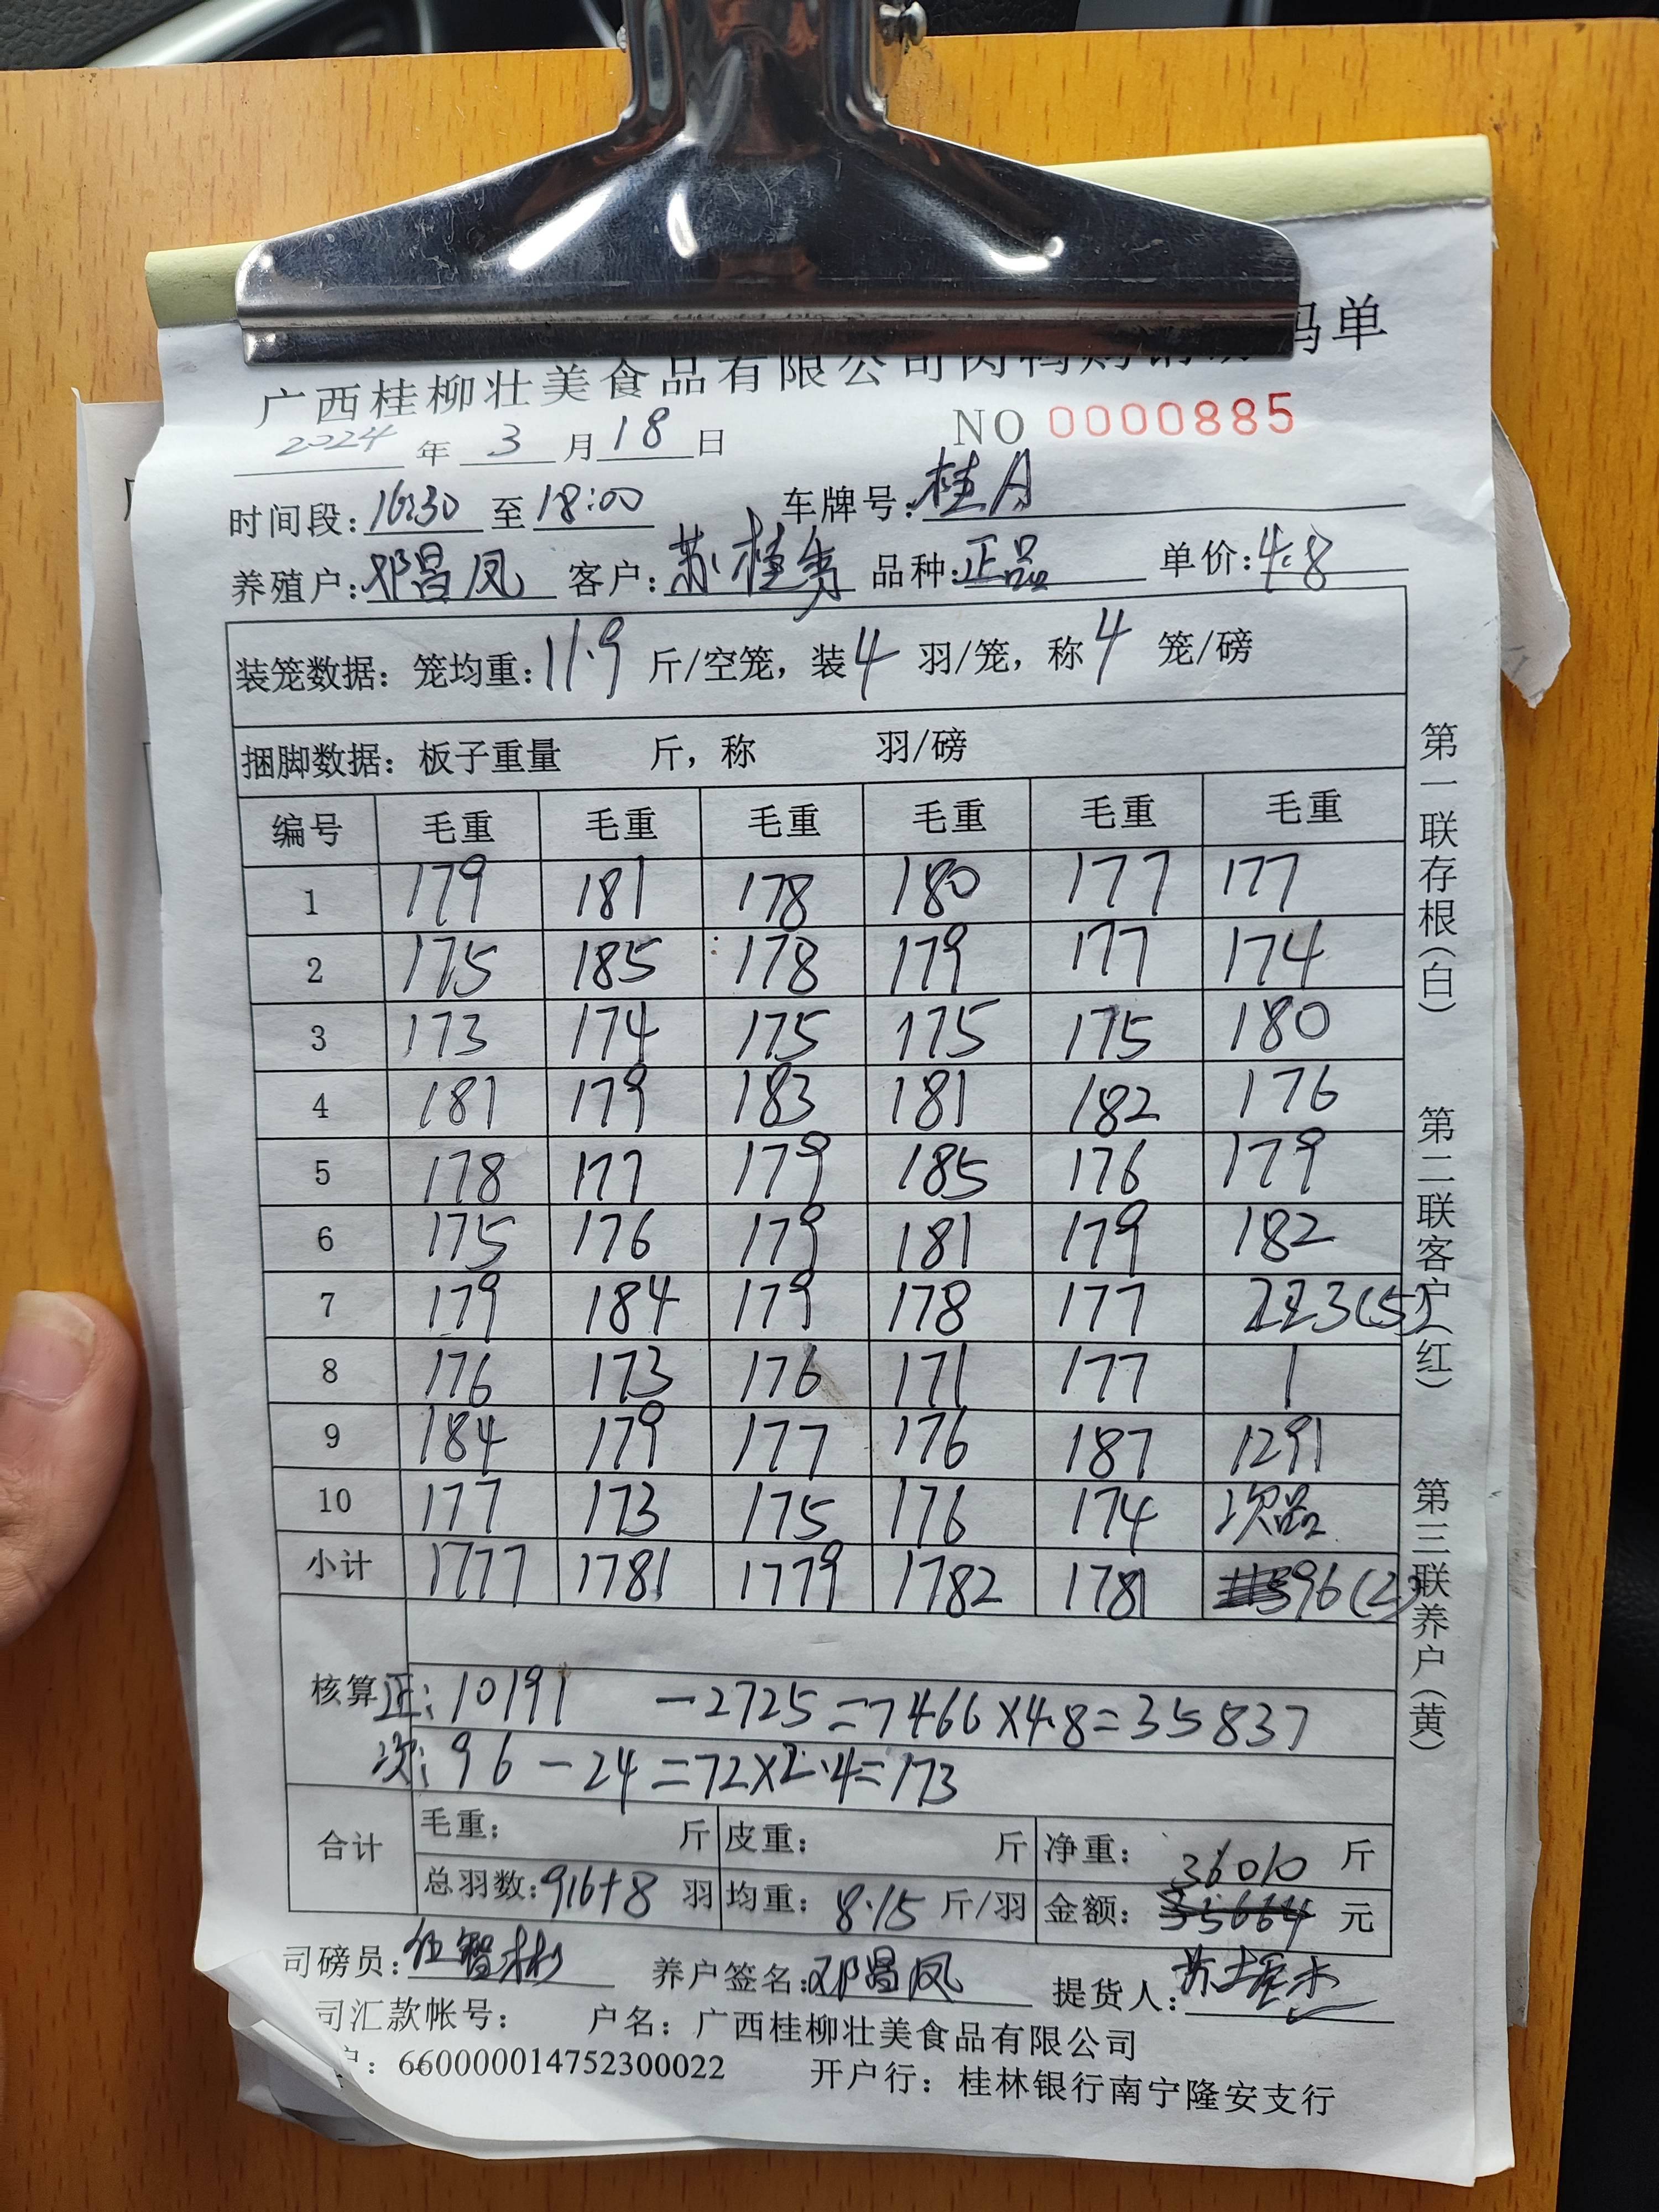 广西桂柳壮美食品有限公司肉鸭购销 码单
2024 年 3 月 18 日 NO 0000885
时间段: 16:30 至 18:00 车牌号: 桂A
养殖户: 邓昌凤 客户: 苏桂秀 品种: 正品 单价: 4.8
装笼数据: 笼均重: 11.9 斤/空笼, 装 4 羽/笼, 称 4 笼/磅
捆脚数据: 板子重量 斤, 称 羽/磅
编号 毛重 毛重 毛重 毛重 毛重 毛重
1 179 181 178 180 177 177
2 175 185 178 179 177 174
3 173 174 175 175 175 180
4 181 179 183 181 182 176
5 178 177 179 185 176 179
6 175 176 179 181 179 182
7 179 184 179 178 177 223(5)
8 176 173 176 171 177 1
9 184 179 177 176 187 1291
10 177 173 175 176 174 次品
小计 1777 1781 1779 1782 1781 96(2)
核算 正: 10191 -2725=7466×4.8=35837
次: 96-24=72×2.4=173
合计 毛重: 斤 皮重: 斤 净重: 斤
36010
总羽数: 916+8 羽 均重: 8.15 斤/羽 金额: 35664 元
司磅员: 伍智彬 养户签名: 邓昌凤 提货人:
司汇款帐号: 户名: 广西桂柳壮美食品有限公司
户: 660000014752300022 开户行: 桂林银行南宁隆安支行
第一联存根(白) 第二联客户(红) 第三联养户(黄)